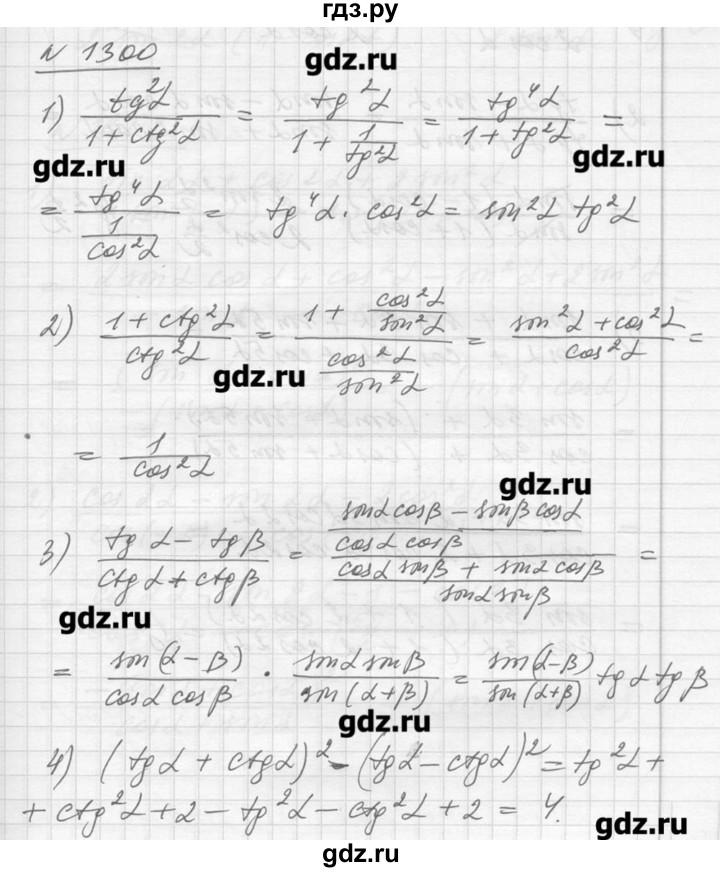 гдз.ру
N 1300
gdz.ru
1) tg²α / (1 + ctg²α) = tg²α / (1 + 1/tg²α) = tg⁴α / (1 + tg²α) =
gdz.ru gdz.ru
= tg⁴α / (1/cos²α) = tg⁴α · cos²α = sin²α tg²α
2) (1 + ctg²α) / ctg²α = (1 + cos²α/sin²α) / (cos²α/sin²α) = (sin²α + cos²α) / cos²α =
gdz.ru
= 1 / cos²α
gdz.ru
3) (tg α - tg β) / (ctg α + ctg β) = ((sinα cosβ - sinβ cosα) / (cosα cosβ)) / ((cosα sinβ + sinα cosβ) / (sinα sinβ)) =
gdz.ru
= sin(α-β) / (cosα cosβ) · sinα sinβ / sin(α+β) = sin(α-β) / sin(α+β) tg α tg β
gdz.ru
4) (tg α + ctg α)² - (tg α - ctg α)² = tg²α +
+ ctg²α + 2 - tg²α - ctg²α + 2 = 4.
gdz.ru
gdz.ru